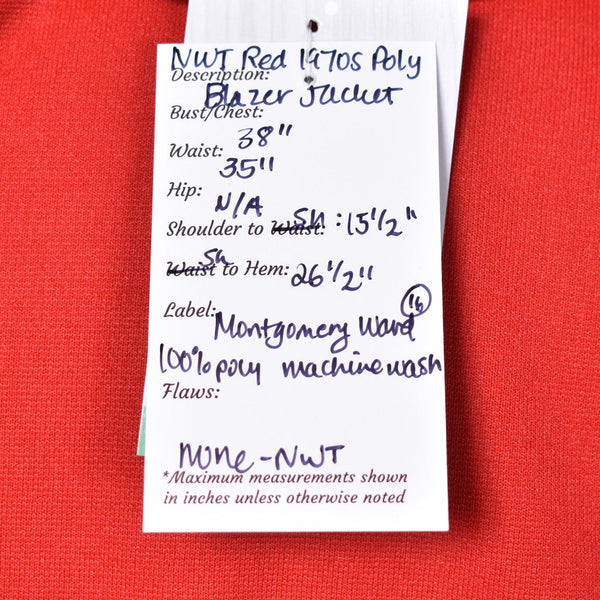 NWT Red 1970s Poly
Description:
Blazer Jacket
Bust/Chest:
38"
Waist: 35"
Hip: N/A
Shoulder to Waist: Sh : 15 1/2"
Waist Sh to Hem: 26 1/2"
Label: 16
Montgomery Ward
100% poly machine wash
Flaws:
none - NWT
*Maximum measurements shown
in inches unless otherwise noted